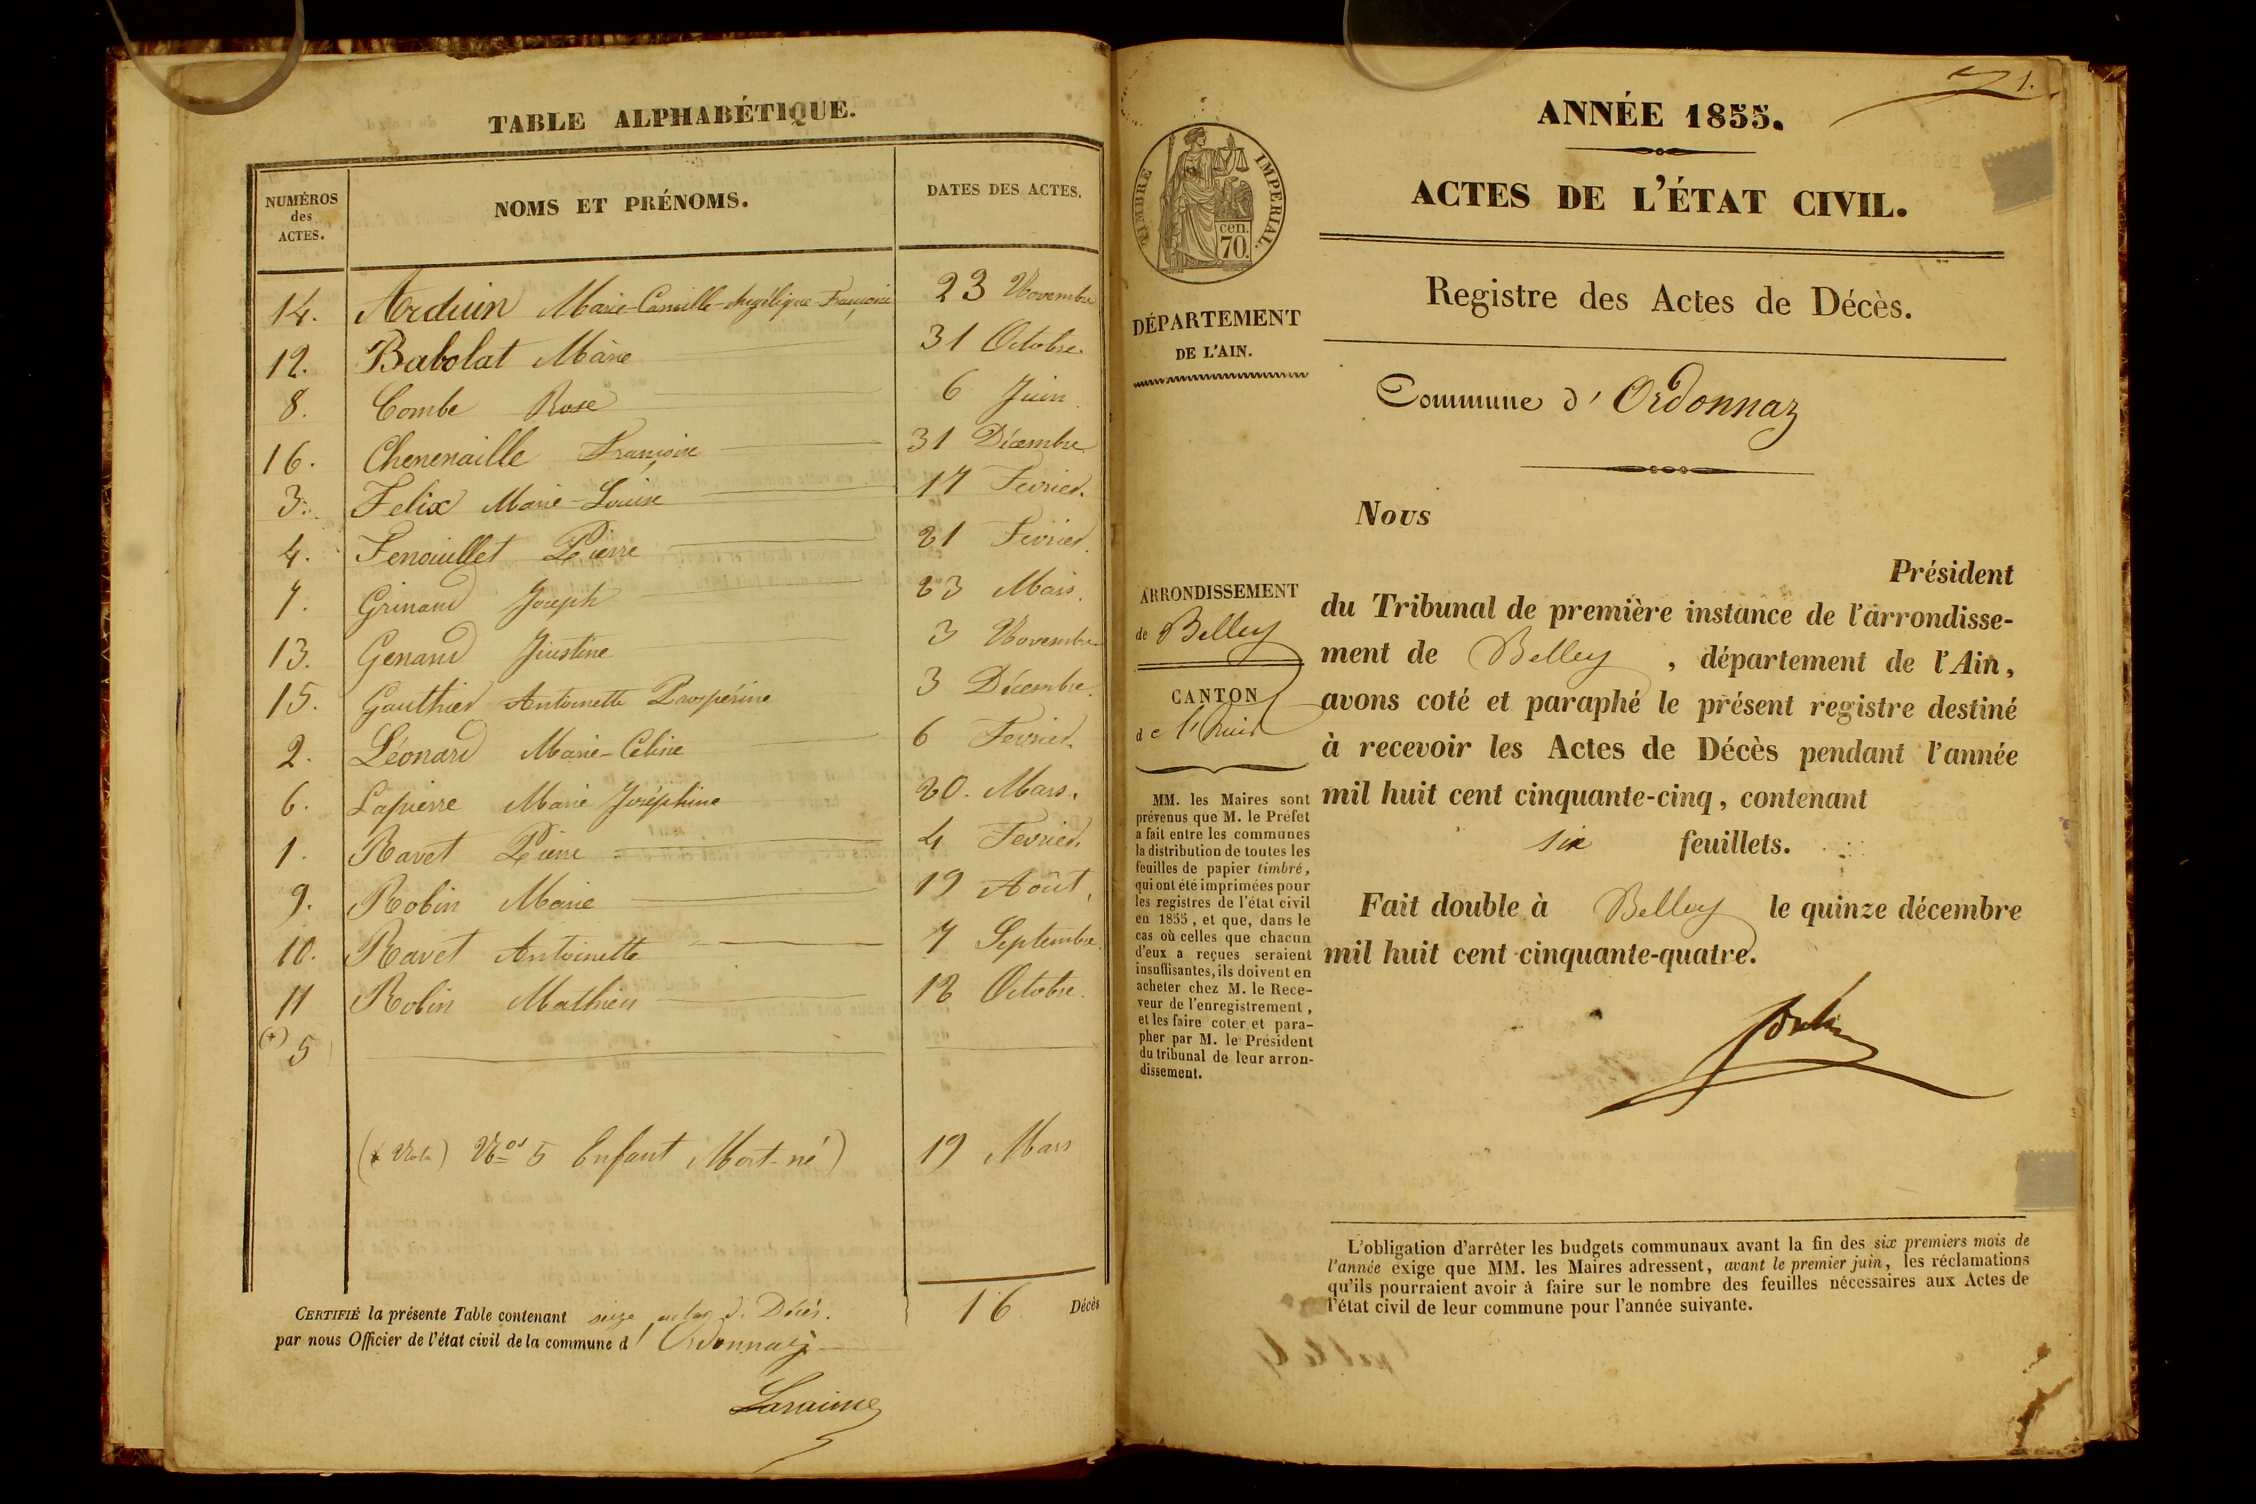 TABLE ALPHABÉTIQUE.
NUMÉROS des ACTES.
NOMS ET PRÉNOMS.
DATES DES ACTES.
14. Arduin Marie-Camille-Angélique-Françoise 23 Novembre
12. Babolat Marie 31 Octobre.
8. Combe Rose 6 Juin.
16. Chenenaille Françoise 31 Décembre
3. Felix Marie-Louise 17 Fevrier.
4. Fenouillet Pierre 21 Fevrier.
7. Grinand Joseph 23 Mars.
13. Genand Justine 3 Novembre
15. Gauthier Antoinette Prospérine 3 Décembre.
2. Léonard Marie-Céline 6 Fevrier.
6. Lapierre Marie Joséphine 20. Mars.
1. Ravet Pierre 4 Fevrier.
9. Robin Marie 19 Août.
10. Ravet Antoinette 7 Septembre.
11 Robin Mathieu 12 Octobre.
(*) 5
(* Nota) Nos 5 Enfant Mort-né) 19 Mars
16 Décès
CERTIFIÉ la présente Table contenant seize actes de Décès.
par nous Officier de l'état civil de la commune d'Ordonnaz
1.
ANNÉE 1855.
ACTES DE L'ÉTAT CIVIL.
TIMBRE IMPERIAL.
cen.
70.
DÉPARTEMENT
DE L'AIN.
Registre des Actes de Décès.
Commune d'Ordonnaz
ARRONDISSEMENT
de Belley
CANTON
de l'huis
MM. les Maires sont
prévenus que M. le Préfet
a fait entre les communes
la distribution de toutes les
feuilles de papier timbré,
qui ont été imprimées pour
les registres de l'état civil
en 1855, et que, dans le
cas où celles que chacun
d'eux a reçues seraient
insuffisantes, ils doivent en
acheter chez M. le Rece-
veur de l'enregistrement,
et les faire coter et para-
pher par M. le Président
du tribunal de leur arron-
dissement.
Nous
Président
du Tribunal de première instance de l'arrondisse-
ment de Belley, département de l'Ain,
avons coté et paraphé le présent registre destiné
à recevoir les Actes de Décès pendant l'année
mil huit cent cinquante-cinq, contenant
six feuillets.
Fait double à Belley le quinze décembre
mil huit cent cinquante-quatre.
L'obligation d'arrêter les budgets communaux avant la fin des six premiers mois de
l'année exige que MM. les Maires adressent, avant le premier juin, les réclamations
qu'ils pourraient avoir à faire sur le nombre des feuilles nécessaires aux Actes de
l'état civil de leur commune pour l'année suivante.